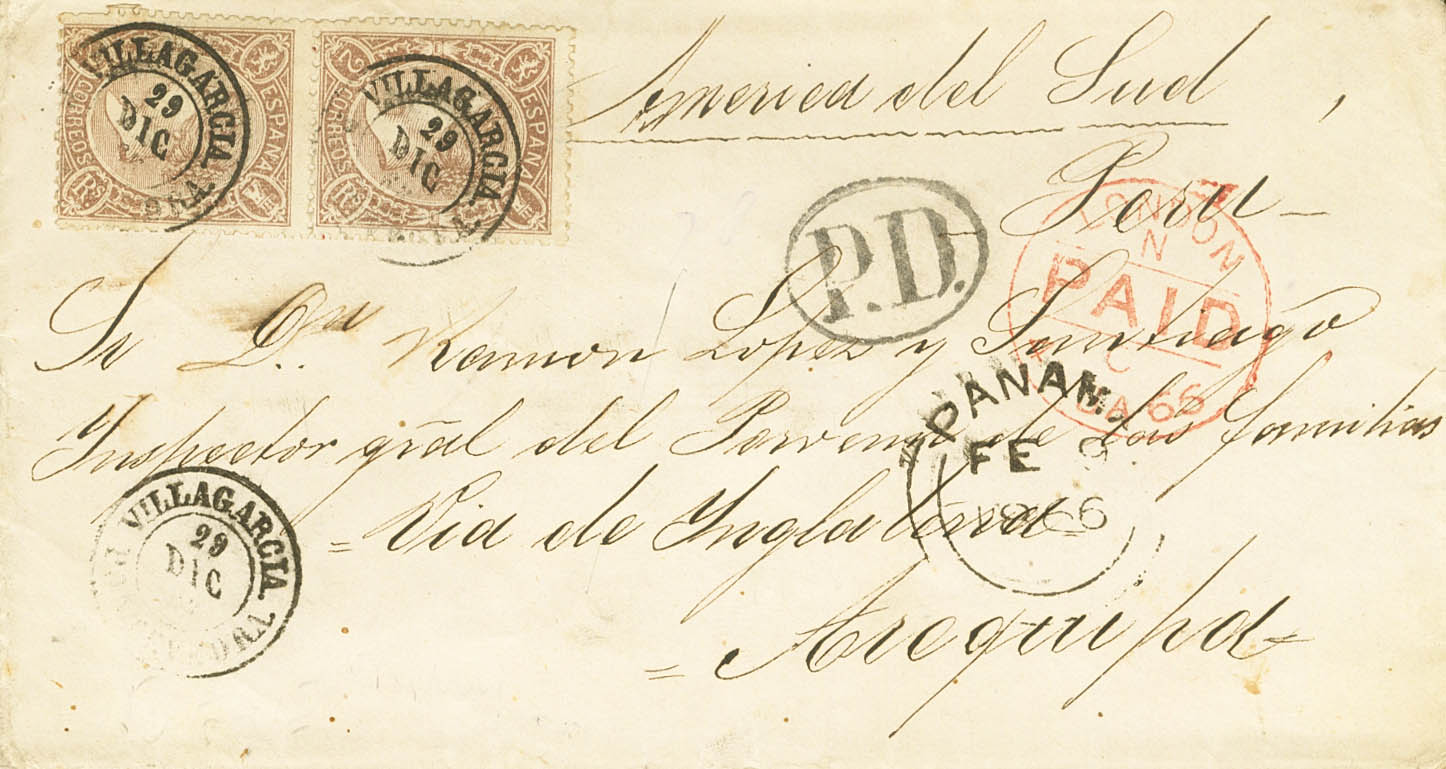 VILLAGARCIA
29
DIC
CORREOS
ESPAÑA
Rs
VILLAGARCIA
29
DIC
2
CORREOS
ESPAÑA
Rs
America del Sud,
Peru
P.D.
LONDON
N
PAID
C
JA 66
Sr Dn. Ramon Lopez y Santiago
Inspector gral del Porvenir de las familias
PANAMA
FE
1866
= Via de Inglaterra =
VILLAGARCIA
29
DIC
= Arequipa =